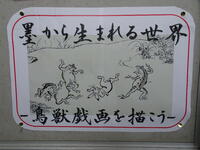 墨から生まれる世界
-鳥獣戯画を描こう-